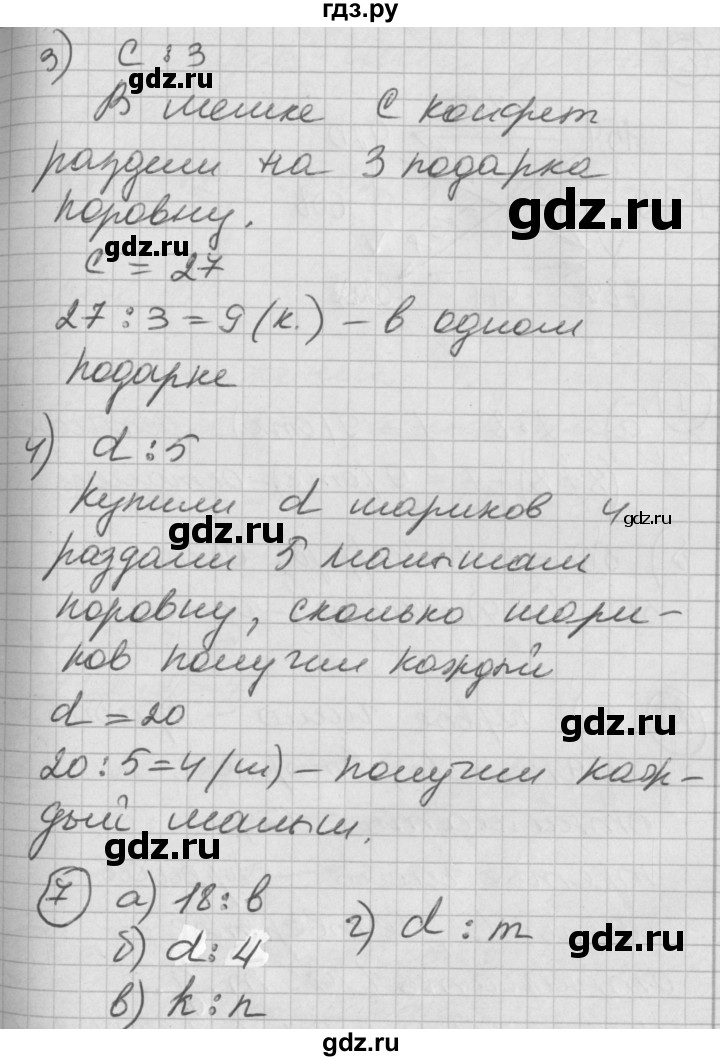 гдз.ру
3) c : 3
gdz.ru
В мешке c конфет
раздели на 3 подарка
gdz.ru
поровну.
gdz.ru
c = 27
27 : 3 = 9 (к.) – в одном
подарке
4) d : 5
Купили d шариков и
gdz.ru
gdz.ru
раздали 5 малышам
поровну, сколько шари-
ков получил каждый
d = 20
gdz.ru
20 : 5 = 4 (ш) – получил каж-
дый малыш.
gdz.ru
7 а) 18 : b
г) d : m
gdz.ru
б) d : 4
в) k : n
gdz.ru